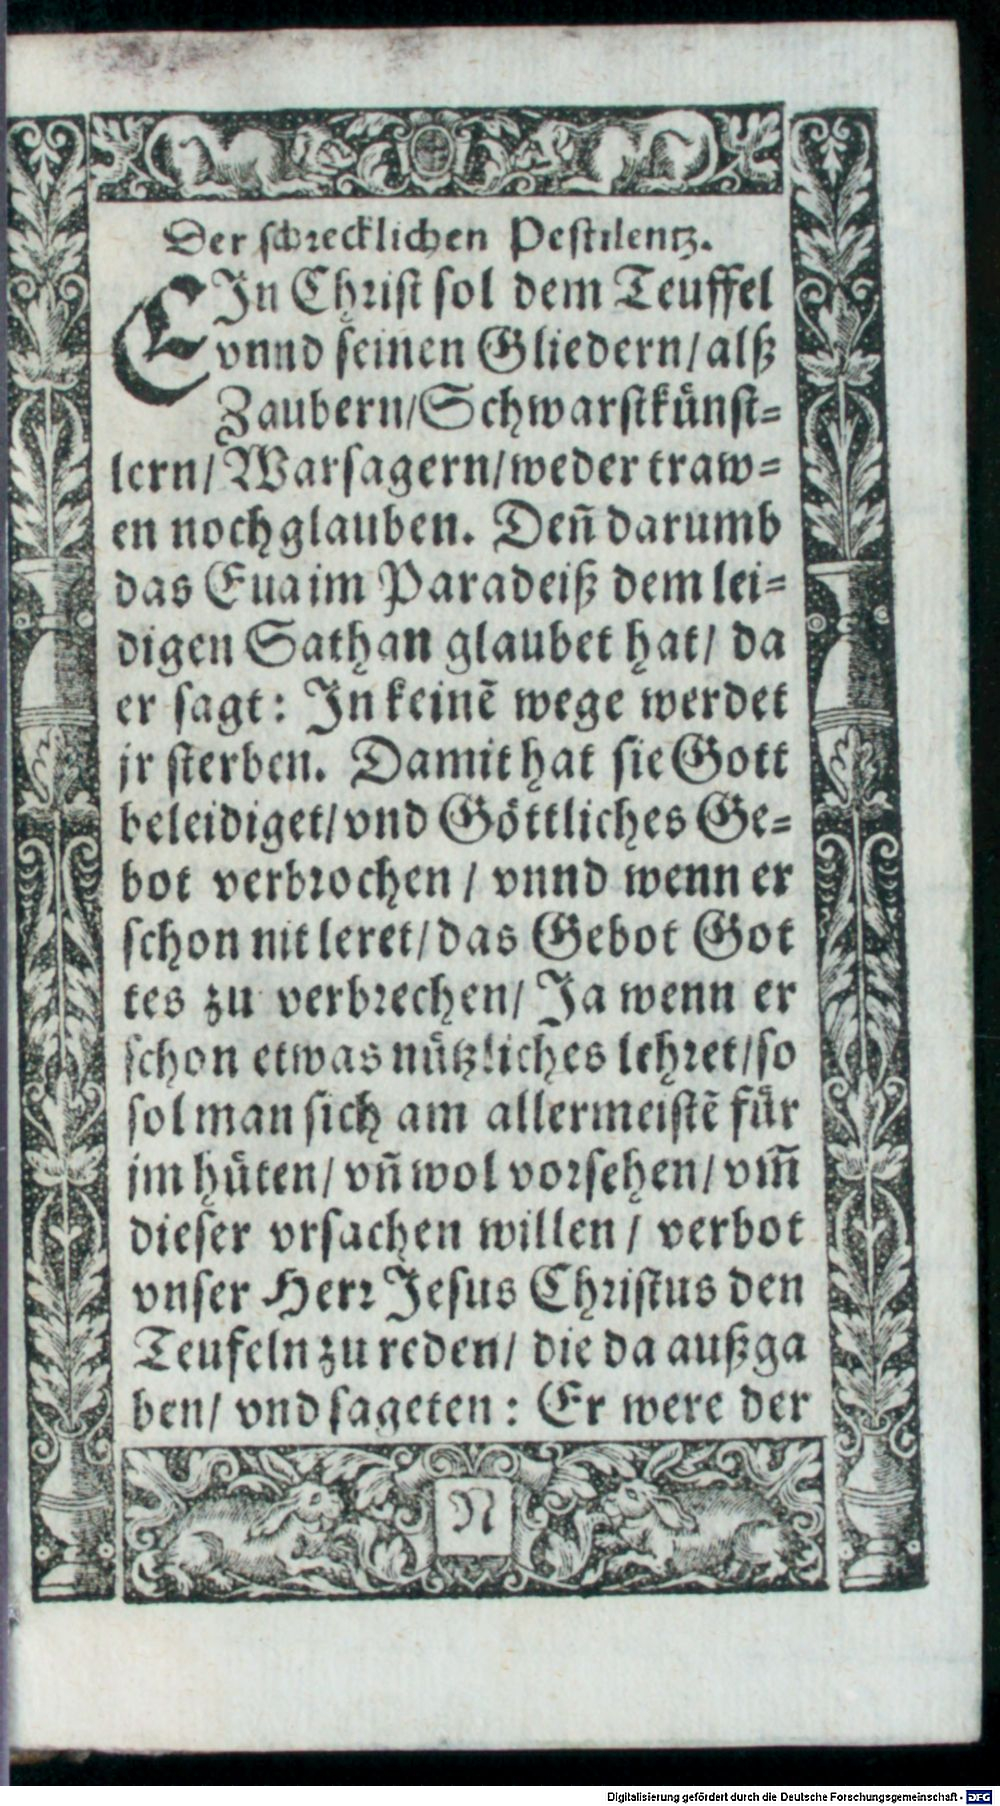 Der schrecklichen Pestilentz.
EIn Christ sol dem Teuffel
vnnd seinen Gliedern/ alß
Zaubern/ Schwarstkünst=
lern/ Warsagern/ weder traw=
en noch glauben. Deñ darumb
das Eua im Paradeiß dem lei=
digen Sathan glaubet hat/ da
er sagt: In keinẽ wege werdet
jr sterben. Damit hat sie Gott
beleidiget/ vnd Göttliches Ge=
bot verbrochen / vnnd wenn er
schon nit leret/ das Gebot Got
tes zu verbrechen/ Ja wenn er
schon etwas nützliches lehret/ so
sol man sich am allermeistẽ für
jm hüten/ vñ wol vorsehen/ vm̃
dieser vrsachen willen/ verbot
vnser Herr Jesus Christus den
Teufeln zu reden/ die da außga
ben/ vnd sageten: Er were der
N
Digitalisierung gefördert durch die Deutsche Forschungsgemeinschaft - DFG